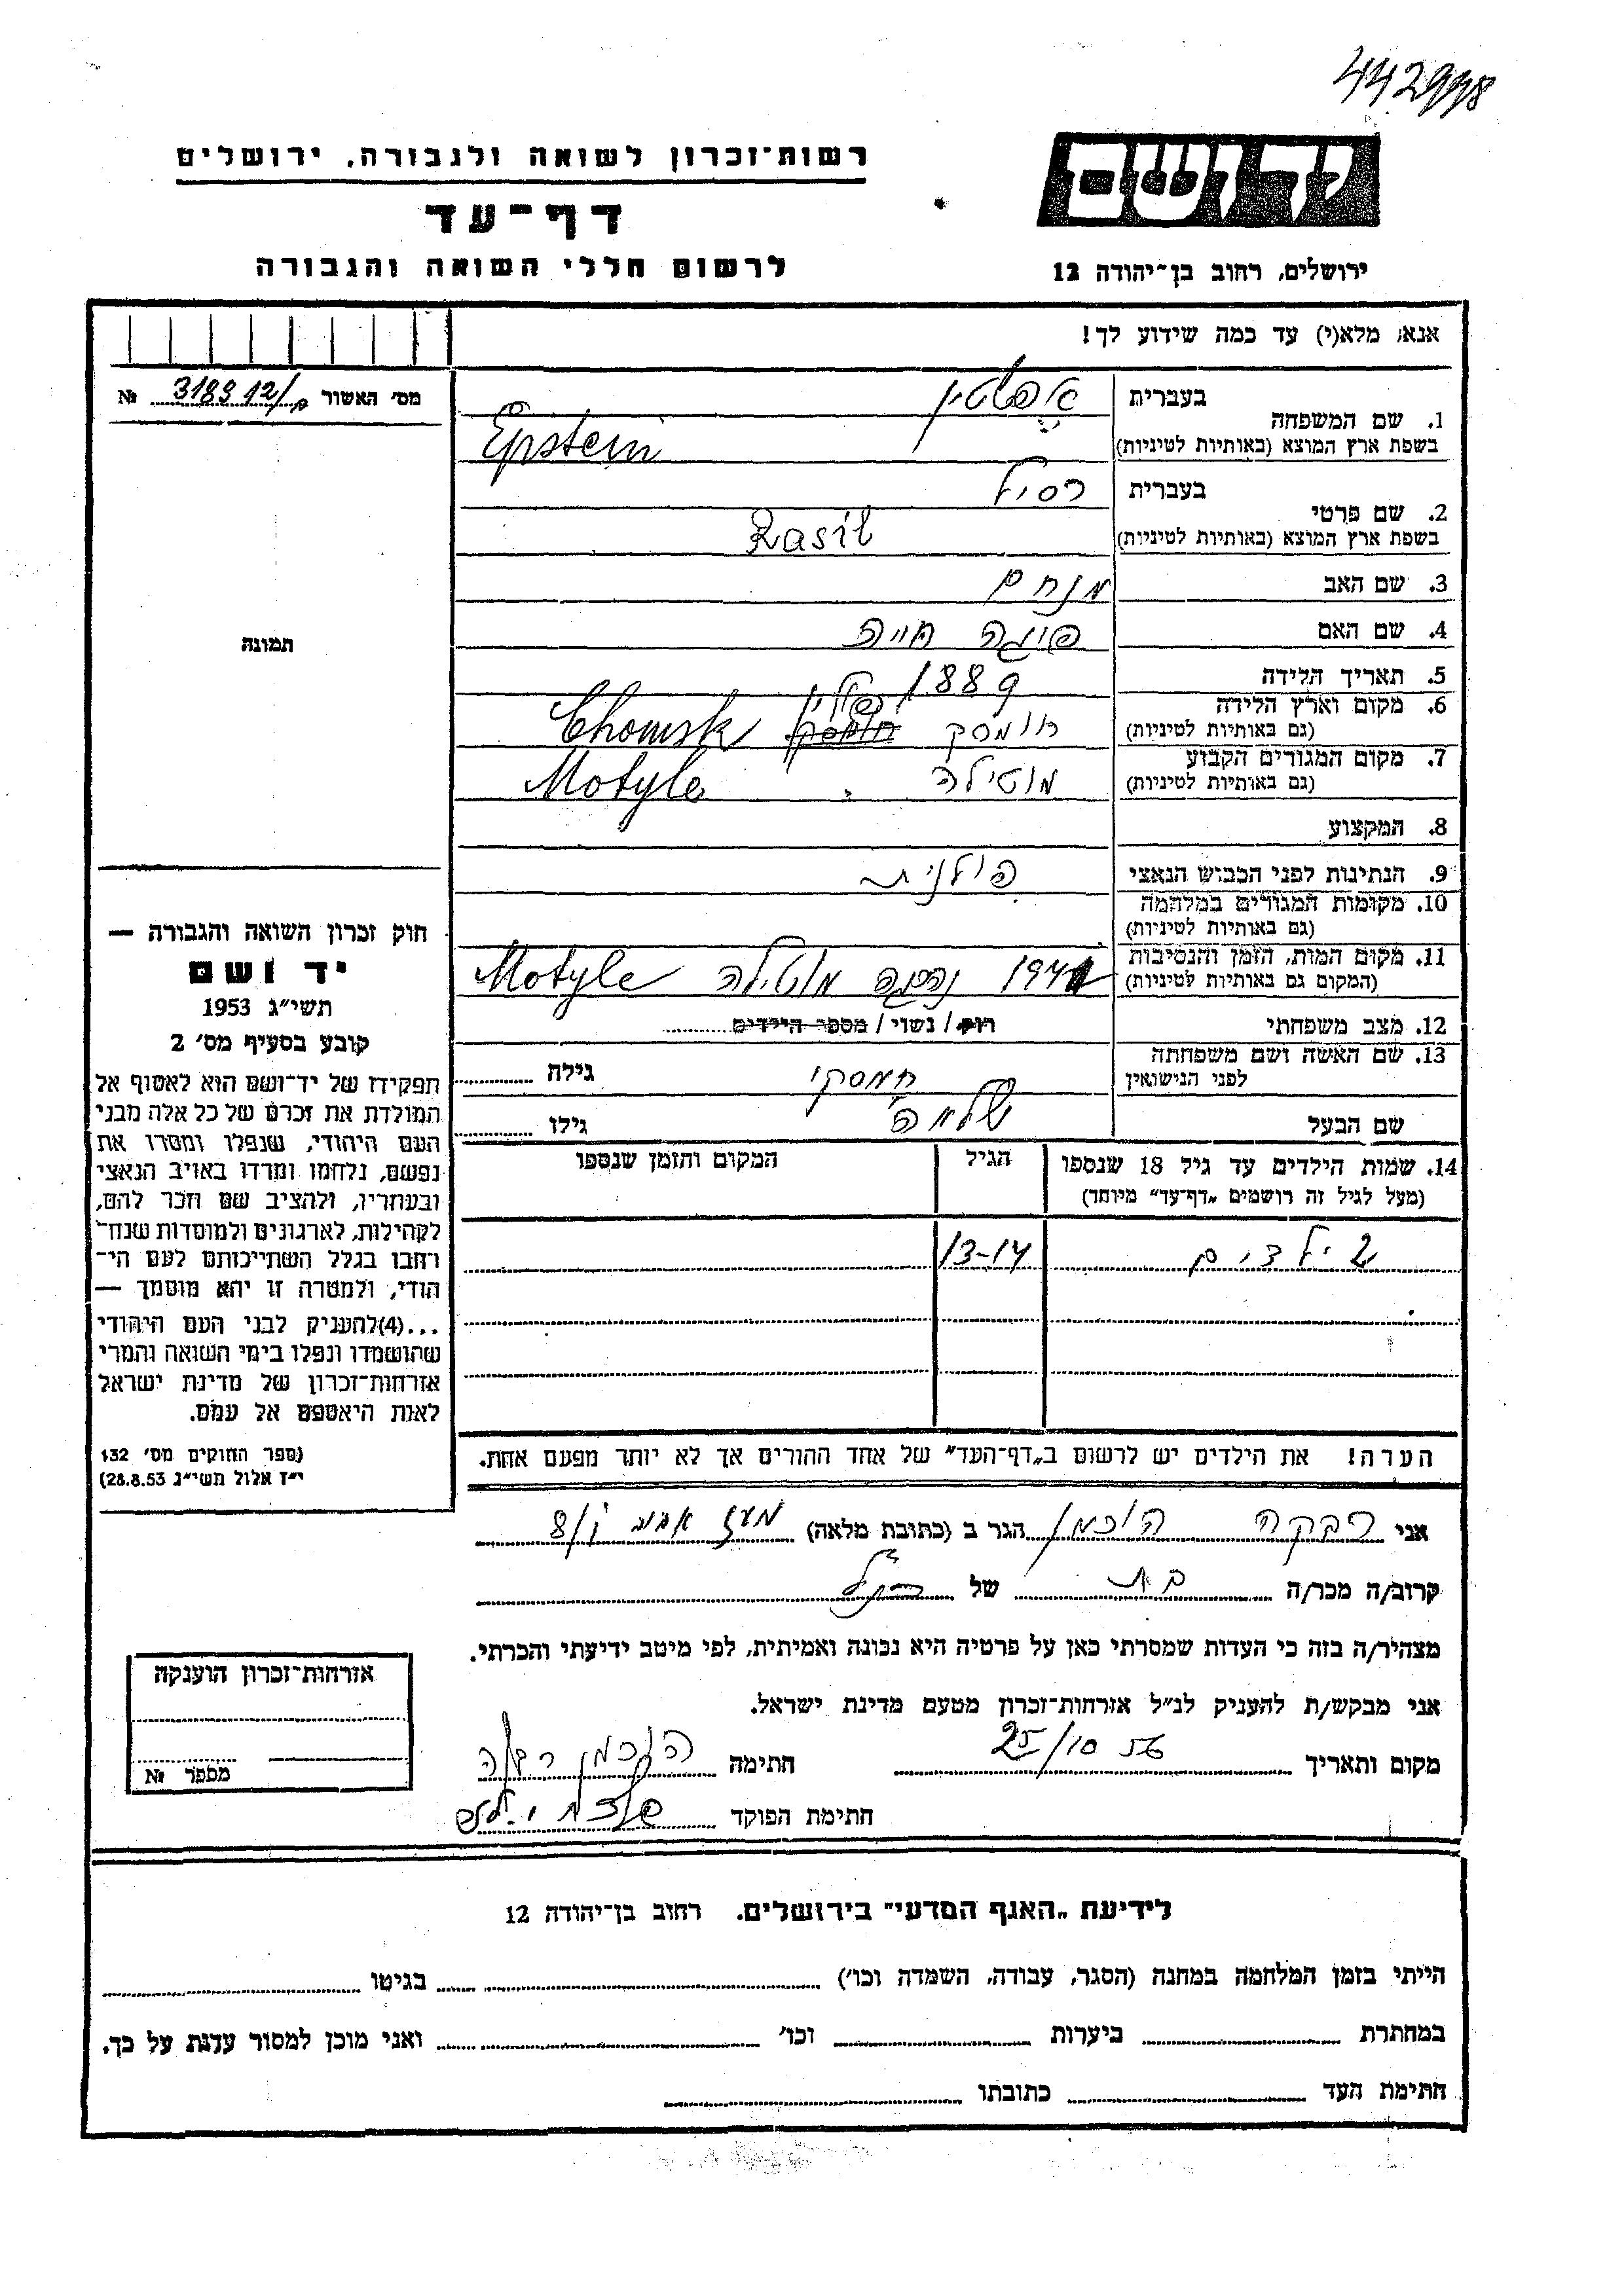 442998
רשות־זכרון לשואה ולגבורה, ירושלים
ידושם
דף־עד
לרשום חללי השואה והגבורה
ירושלים, רחוב בן־יהודה 12
אנא, מלא(י) עד כמה שידוע לך!
מס׳ האשור 318912/ №
1. שם המשפחה
בעברית אפשטין
בשפת ארץ המוצא (באותיות לטיניות) Epstein
2. שם פרטי
בעברית רסיל
בשפת ארץ המוצא (באותיות לטיניות) Rasil
3. שם האב מנחם
4. שם האם פיגה חייה
תמונה
5. תאריך הלידה 1889
6. מקום וארץ הלידה (גם באותיות לטיניות) חומסק פולין Chomsk
7. מקום המגורים הקבוע (גם באותיות לטיניות) מוטילה Motyle
8. המקצוע
9. הנתינות לפני הכבוש הנאצי פולנית
10. מקומות המגורים במלחמה (גם באותיות לטיניות)
11. מקום המות, הזמן והנסיבות (המקום גם באותיות לטיניות) נרצחה מוטילה Motyle
12. מצב משפחתי רוק / נשוי / מספר הילדים
13. שם האשה ושם משפחתה לפני הנישואין חמסקי גילה
שם הבעל שלמה גילו
14. שמות הילדים עד גיל 18 שנספו
(מעל לגיל זה רושמים „דף־עד״ מיוחד)
הגיל
המקום והזמן שנספו
2 ילדים 13-14
הערה! את הילדים יש לרשום ב„דף־העד״ של אחד ההורים אך לא יותר מפעם אחת.
חוק זכרון השואה והגבורה —
יד ושם
תשי״ג 1953
קובע בסעיף מס׳ 2
תפקידו של יד־ושם הוא לאסוף אל
המולדת את זכרם של כל אלה מבני
העם היהודי, שנפלו ומסרו את
נפשם, נלחמו ומרדו באויב הנאצי
ובעוזריו, ולהציב שם וזכר להם,
לקהילות, לארגונים ולמוסדות שנח־
רחבו בגלל השתייכותם לעם הי־
הודי, ולמטרה זו יהא מוסמך —
...(4)להעניק לבני העם היהודי
שהושמדו ונפלו בימי השואה והמרי
אזרחות־זכרון של מדינת ישראל
לאות היאספם אל עמם.
(ספר החוקים מס׳ 132
י״ז אלול תשי״ג 28.8.53)
אני רבקה הוכמן הגר ב (כתובת מלאה) מעז אביב 8/
קרוב/ה מכר/ה בת של הנ״ל
מצהיר/ה בזה כי העדות שמסרתי כאן על פרטיה היא נכונה ואמיתית, לפי מיטב ידיעתי והכרתי.
אני מבקש/ת להעניק לנ״ל אזרחות־זכרון מטעם מדינת ישראל.
מקום ותאריך 25/10 חתימה הוכמן רבקה
חתימת הפוקד
אזרחות־זכרון הוענקה
מספר №
לידיעת „האגף המדעי״ בירושלים. רחוב בן־יהודה 12
הייתי בזמן המלחמה במחנה (הסגר, עבודה, השמדה וכו׳) בגיטו
במחתרת ביערות וכו׳ ואני מוכן למסור עדות על כך.
חתימת העד כתובתו